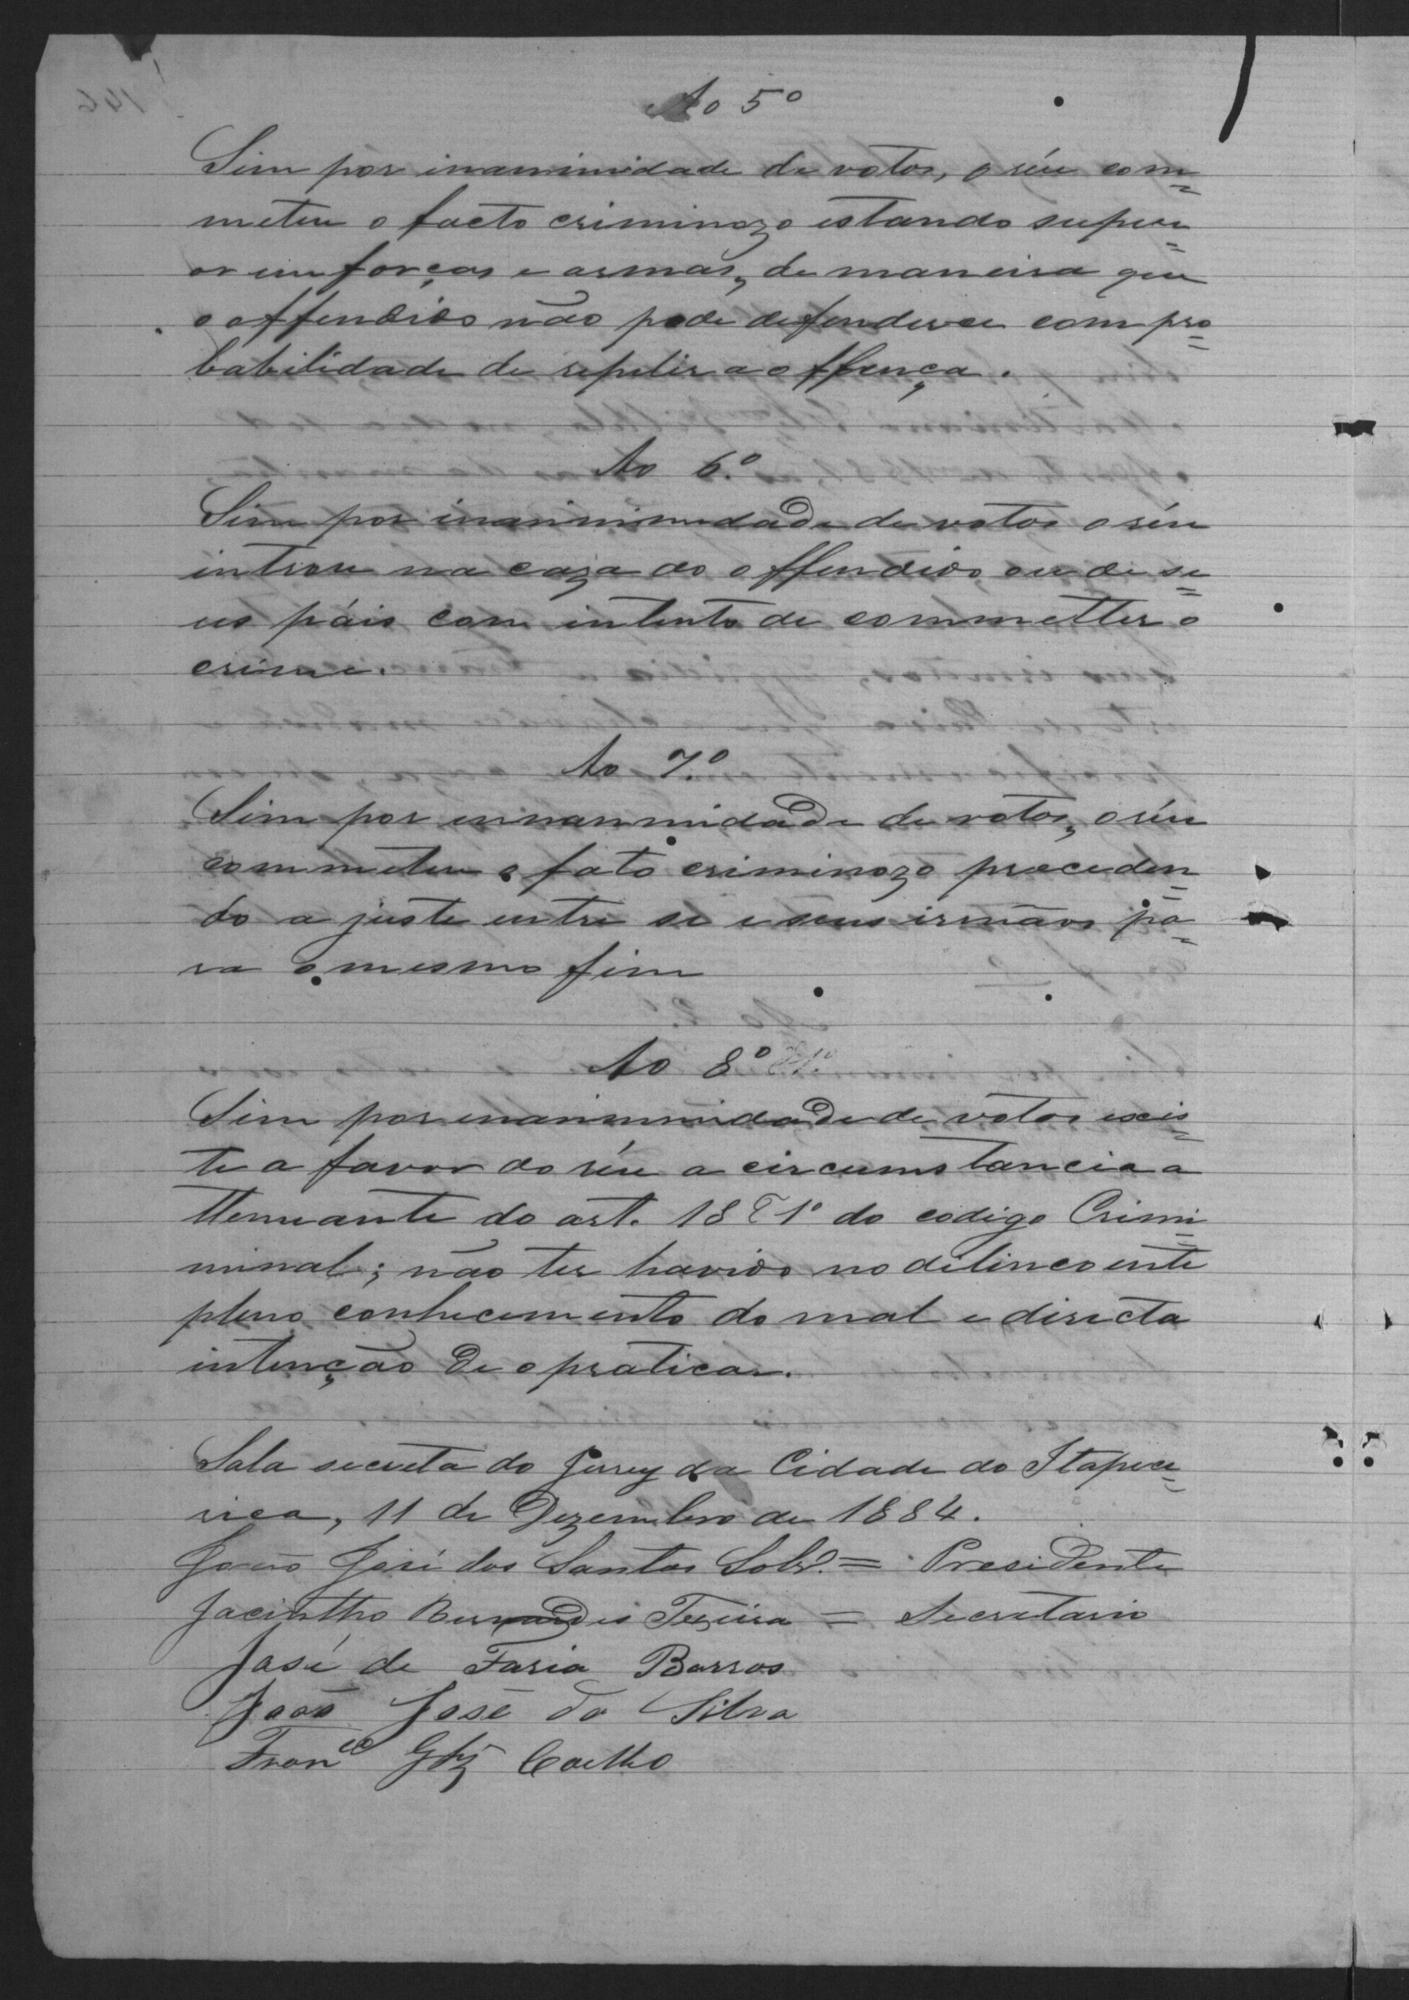 Ao 5º
Sim por inanimidade de votos, o réu com=
meteu o facto criminozo estando superi=
or em forças e armas, de maneira que
o offendido não pode defenderce com pro=
babilidade de repelir a offença.
Ao 6.º
Sim por inanimmidade de votos o réu
introu na caza do offendido, ou de se=
us páis com intento de commetter o
crime.
Ao 7.º
Sim por innanmidade de votos, o réu
commeteu o fato criminozo preceden=
do a juste entre si e seus irmãos pa=
ra o mesmo fim
Ao 8º
Sim por inanimmidade de votos exis=
te a favor do réu a circumstancia a
ttenuante do art. 18 § 1º do codigo Crimi=
minal; não ter havido no delincoente
pleno conhecimento do mal e directa
intenção de o praticar.
Sala secreta do Jurey da Cidade do Itapece=
rica, 11 de Dezembro de 1884.
João José dos Santos Sobr.º = Presidente
Jacintho Bernardes Texeira = Secretario
José de Faria Barros
João José da Silva
Fran.co Glz Coelho